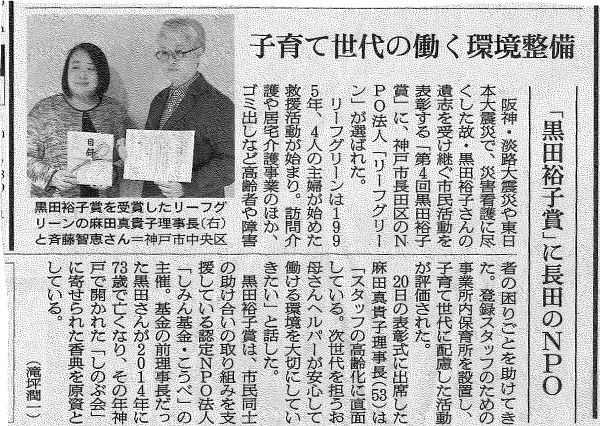 子育て世代の働く環境整備
「黒田裕子賞」に長田のNPO
阪神・淡路大震災や東日
本大震災で、災害看護に尽
くした故・黒田裕子さんの
遺志を受け継ぐ市民活動を
表彰する「第4回黒田裕子
賞」に、神戸市長田区のN
PO法人「リーフグリー
ン」が選ばれた。
リーフグリーンは199
5年、4人の主婦が始めた
救援活動が始まり。訪問介
護や居宅介護事業のほか、
ゴミ出しなど高齢者や障害
者の困りごとを助けてき
た。登録スタッフのための
事業所内保育所を設置し、
子育て世代に配慮した活動
が評価された。
20日の表彰式に出席した
麻田真貴子理事長(53)は
「スタッフの高齢化に直面
している。次世代を担うお
母さんヘルパーが安心して
働ける環境を大切にしてい
きたい」と話した。
黒田裕子賞は、市民同士
の助け合いの取り組みを支
援している認定NPO法人
「しみん基金・こうべ」の
主催。基金の前理事長だっ
た黒田さんが2014年に
73歳で亡くなり、その年神
戸で開かれた「しのぶ会」
に寄せられた香典を原資と
している。
(滝坪潤一)
目録
黒田裕子賞を受賞したリーフグ
リーンの麻田真貴子理事長(右)
と斉藤智恵さん=神戸市中央区